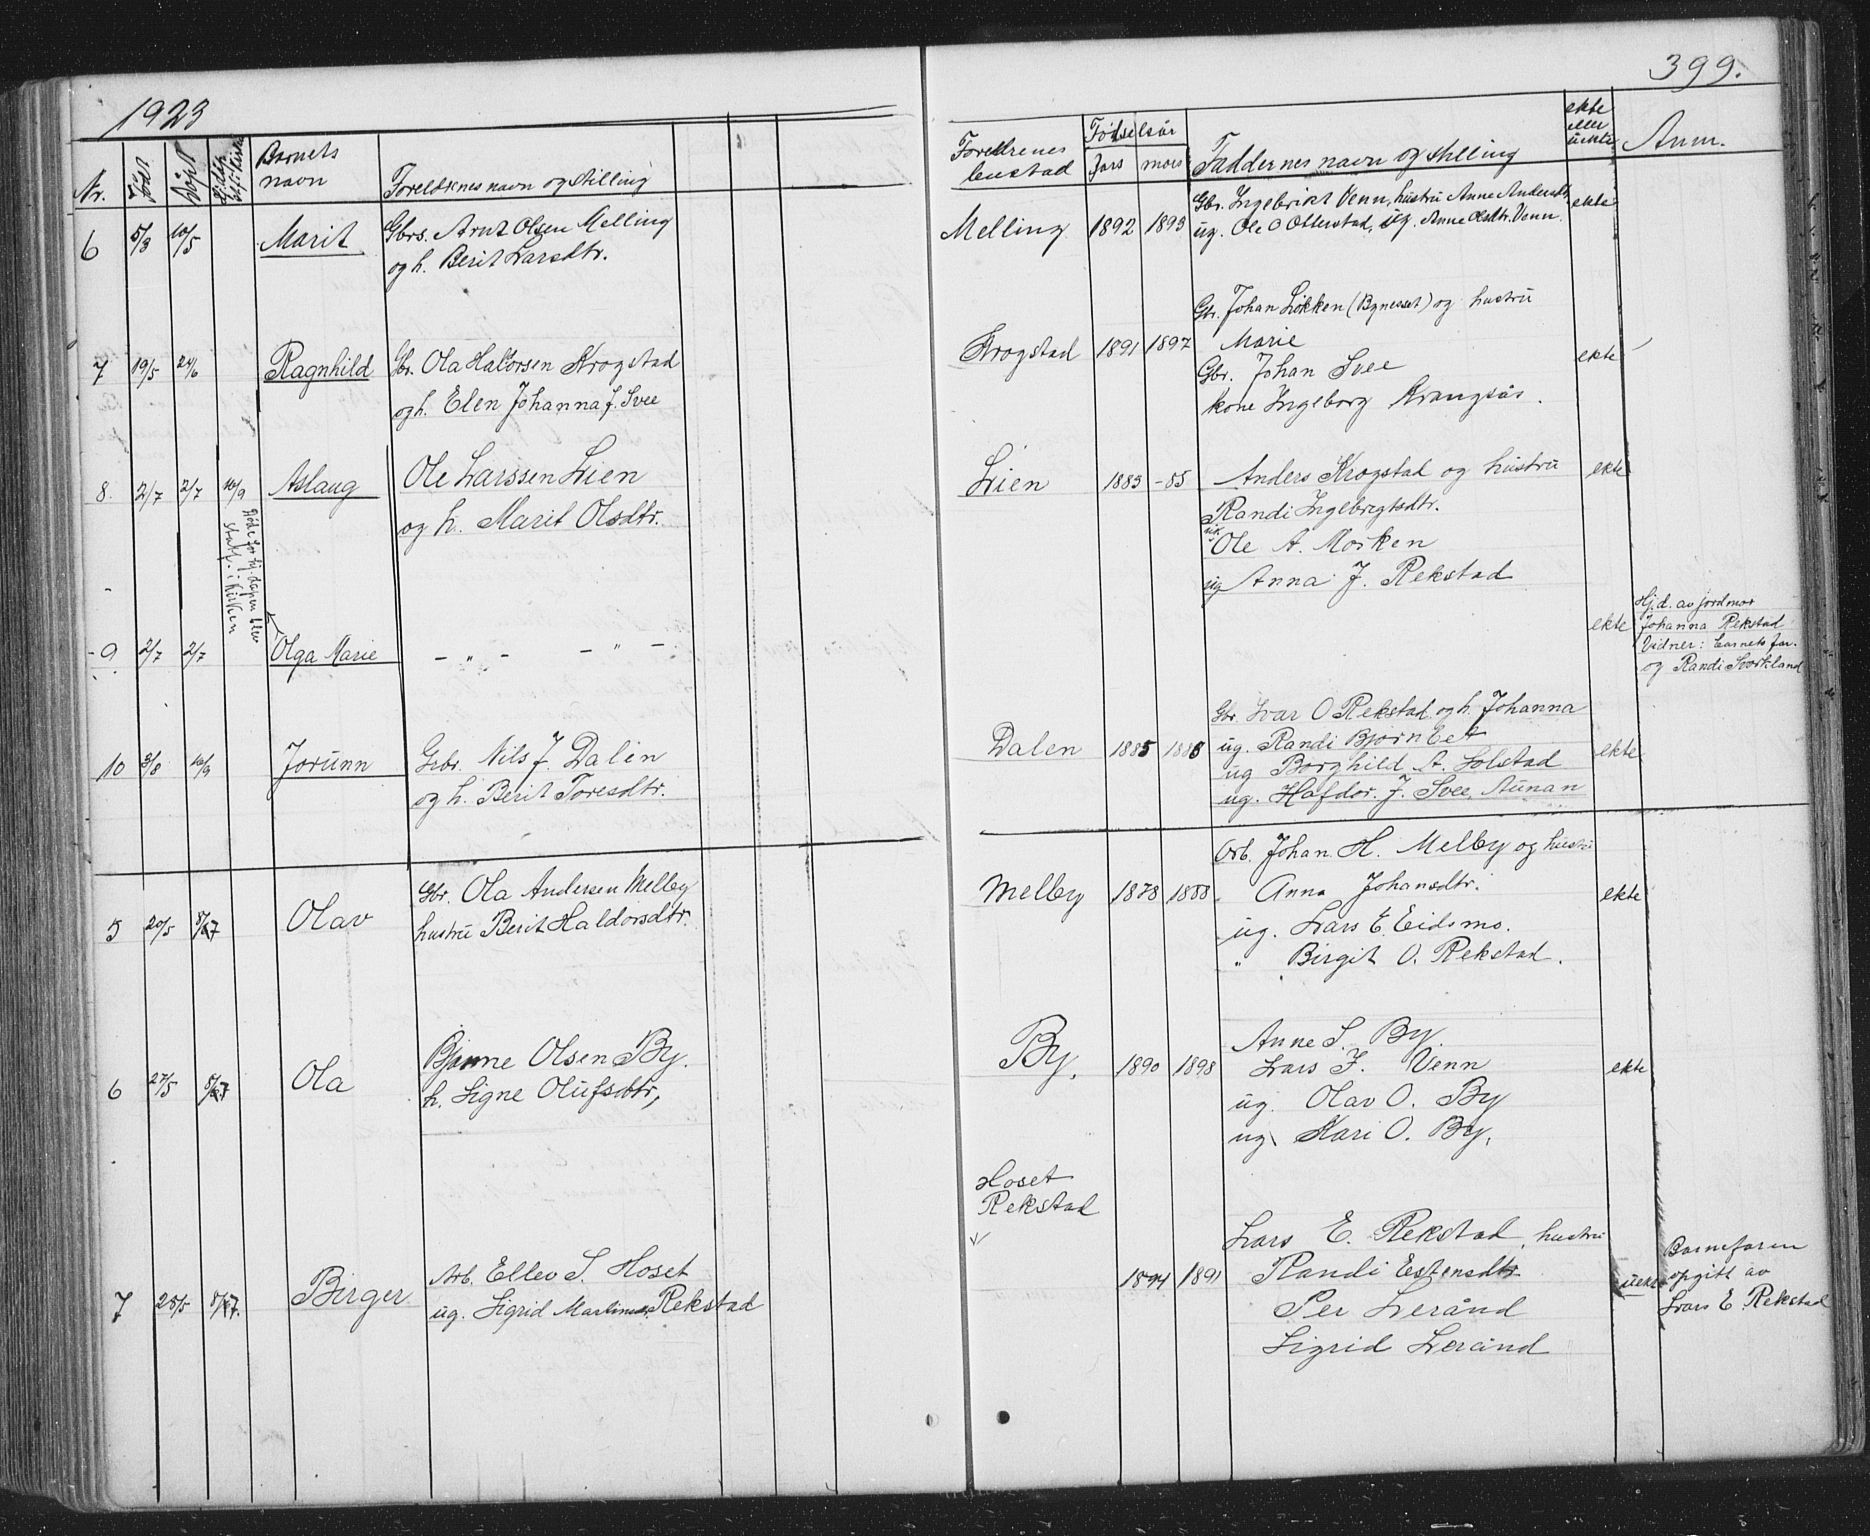 1923
399.
Nr. Född Döpt Barnets navn Foreldrenes navn og stilling
Foreldrenes bustad Fødselsår fars mors Faddernes navn og stilling ekte eller uekte Anm.
6 5/3 10/5 Marit Gbrs. Arnt Olsen Melling
og h. Berit Larsdtr.
Melling 1892 1893 Gbr. Ingebrikt Venn, hustru Anne Andersdtr. ekte
ug. Ole O Otterstad, ug. Anne Olsdtr. Venn.
7 19/5 24/6 Ragnhild Gbr. Ola Halvorsen Krogstad
og h. Elen Johanna J. Svee
Krogstad 1891 1897 Gbr. Johan Løkken (Bynesset) og hustru
Marie
Gbr. Johan Svee ekte
kone Ingeborg Krangsås.
8. 2/7 2/7 16/9 Aslaug Ole Larssen Lien
og h. Marit Olsdtr.
Nöde for tj. dåpen blev
stadf. i kirken
Lien 1883 -85 Anders Krogstad og hustru ekte
Randi Ingebrigtsdtr.
uk. Ole A. Morken
ug Anna J. Rekstad
- 9 2/7 2/7 Olga Marie - " - - " -
ekte Hj.d. av jordmor
Johanna Rekstad
Vidner: Barnets far.
og Randi Svorkland
10 3/8 16/9 Jorunn Gbr. Nils J. Dalen
og h. Berit Toresdtr.
Dalen 1885 1886 Gbr. Ivar O Rekstad og h. Johanna
ug. Randi Bjørnbet
ug Borghild A. Solstad ekte
ug. Hafdor. J. Svee, Aunan
5 20/5 8/7 Olav Gbr. Ola Andersen Melby
hustru Berit Haldorsdtr.
Melby 1878 1888. Arb. Johan H. Melby og hustru
Anna Johansdtr. ekte
ug. Lars E. Eidsmo.
" Birgit O. Rekstad.
6 27/5 8/7 Ola Bjarne Olsen By.
h. Signe Olufsdtr,
By, 1890 1898 Anne S. By.
Lars J. Venn ekte
ug. Olav O. By
ug. Kari O. By.
7 25/5 8/7. Birger Arb. Ellev S. Hoset
ug. Sigrid Martinusd. Rekstad
Hoset
Rekstad
1894 1891 Lars E. Rekstad, hustru
Randi Estensdtr uekte
Per Lerånd
Sigrid Lerånd
Barnefaren
opgitt av
Lars E. Rekstad